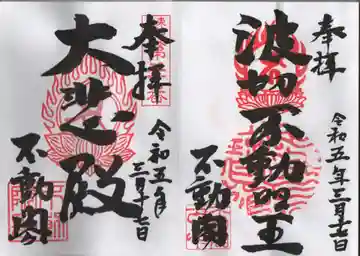 奉拝
波切不動明王
不動閣
令和五年三月十七日
奉拝
大悲殿
不動閣
令和五年
三月十七日